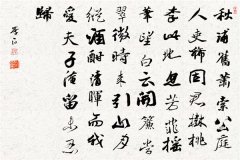 秋浦舊蕭索公庭
人吏稀因君樹桃
李此地忽芳菲搖
筆望白云開簾當
翠微時來引山月
縱酒酣清暉而我
愛夫子淹留未忍
歸